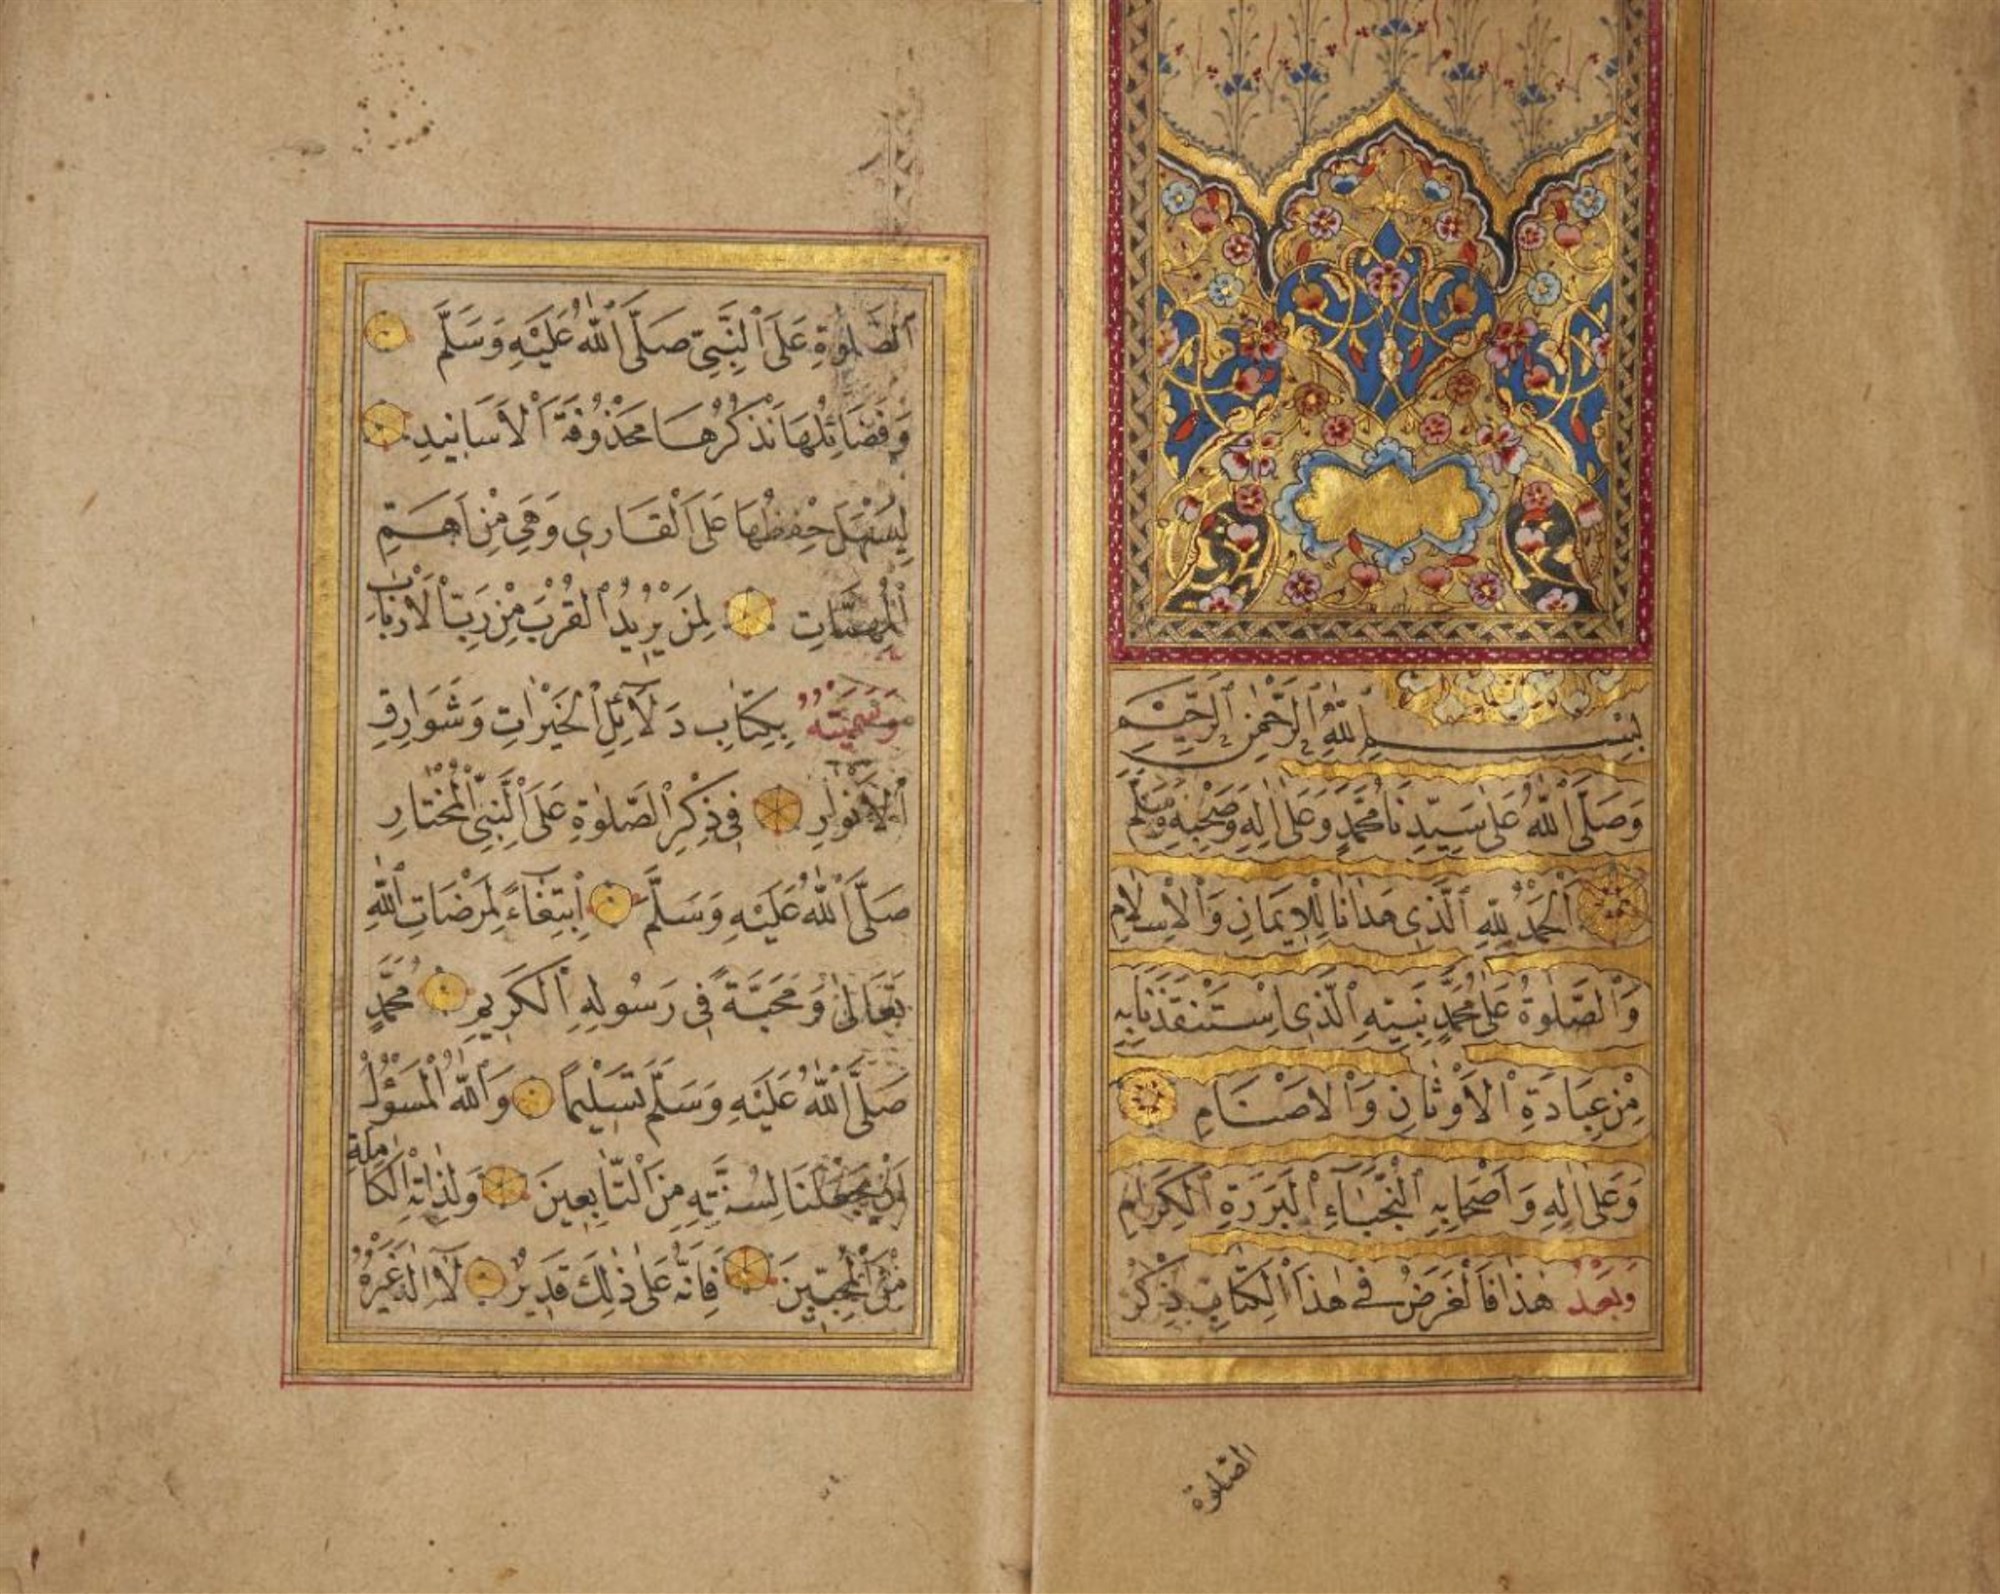 بِسْمِ اللّٰهِ الرَّحْمٰنِ الرَّحِيمِ
وَصَلَّى اللّٰهُ عَلٰى سَيِّدِنَا مُحَمَّدٍ وَعَلٰى اٰلِهِ وَصَحْبِهِ وَسَلَّمَ
اَلْحَمْدُ لِلّٰهِ الَّذِى هَدٰانَا لِلْاِيمَانِ وَالْاِسْلَامِ
وَالصَّلٰوةُ عَلٰى مُحَمَّدٍ نَبِيِّهِ الَّذِى اسْتَنْقَذَنَا بِهِ
مِنْ عِبَادَةِ الْاَوْثَانِ وَالْاَصْنَامِ
وَعَلٰى اٰلِهِ وَاَصْحَابِهِ النُّجَبَآءِ الْبَرَرَةِ الْكِرَامِ
وَبَعْدُ هٰذَا فَالْغَرَضُ فِى هٰذَا الْكِتَابِ ذِكْرُ
الصلوة
اَلصَّلٰوةِ عَلَى النَّبِىِّ صَلَّى اللّٰهُ عَلَيْهِ وَسَلَّمَ
وَفَضَائِلُهَا نَذْكُرُهَا مَحْذُوفَةَ الْاَسَانِيدِ
لِيَسْهُلَ حِفْظُهَا عَلَى الْقَارِى وَهِىَ مِنْ اَهَمِّ
الْمُهِمَّاتِ لِمَنْ يُرِيدُ الْقُرْبَ مِنْ رَبِّ الْاَرْبَابِ
وَسَمَّيْتُهُ بِكِتَابِ دَلَآئِلِ الْخَيْرَاتِ وَشَوَارِقِ
الْاَنْوَارِ فِى ذِكْرِ الصَّلٰوةِ عَلَى النَّبِىِّ الْمُخْتَارِ
صَلَّى اللّٰهُ عَلَيْهِ وَسَلَّمَ اِبْتِغَاءً لِمَرْضَاتِ اللّٰهِ
تَعَالٰى وَمَحَبَّةً فِى رَسُولِهِ الْكَرِيمِ مُحَمَّدٍ
صَلَّى اللّٰهُ عَلَيْهِ وَسَلَّمَ تَسْلِيمًا وَاللّٰهُ الْمَسْؤُلُ
اَنْ يَجْعَلَنَا لِسُنَّتِهِ مِنَ التَّابِعِينَ وَلِذَاتِهِ الْكَامِلَةِ
مِنَ الْمُحِبِّينَ فَاِنَّهُ عَلٰى ذٰلِكَ قَدِيرٌ لَآ اِلٰهَ غَيْرُهُ